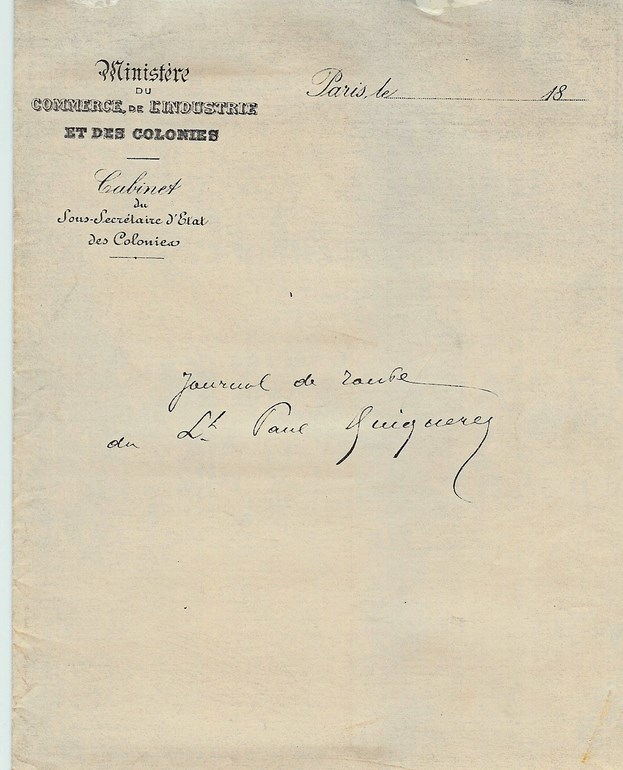 Ministère
DU
COMMERCE, DE L'INDUSTRIE
ET DES COLONIES
Cabinet
du
Sous-Secrétaire d'Etat
des Colonies
Paris, le 18
Journal de route
du Lt. Paul Quiquerez